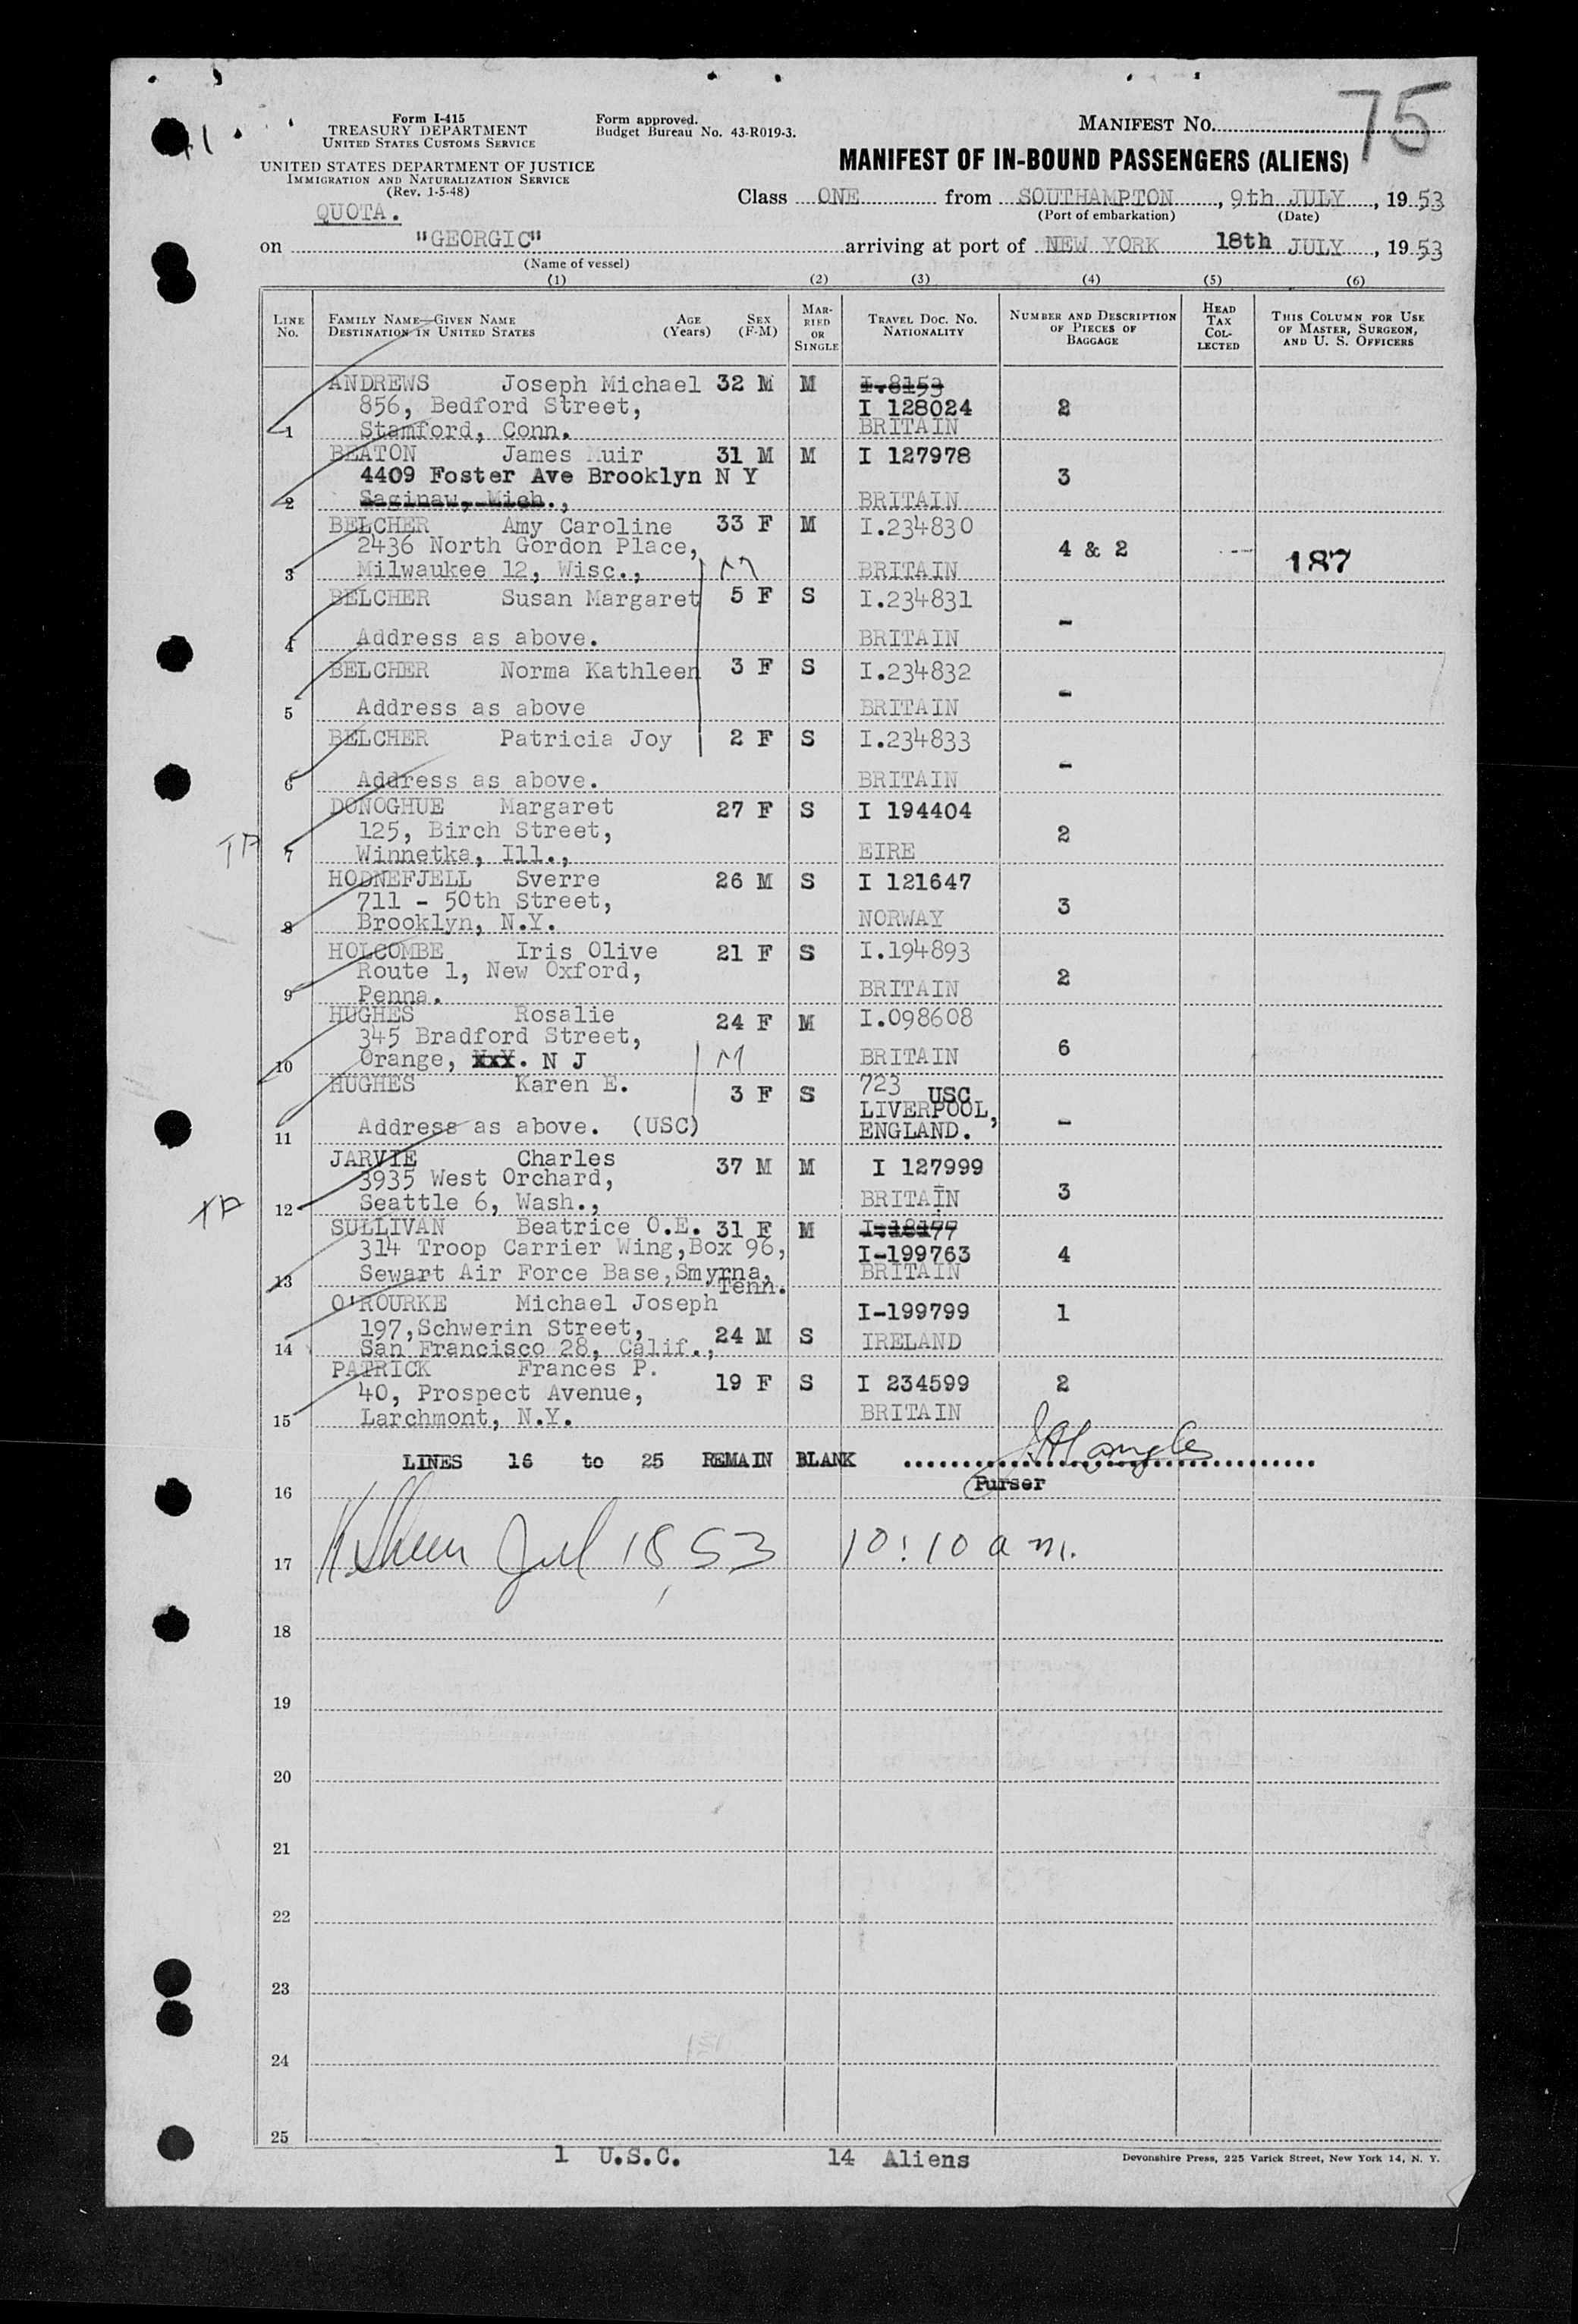 75
Form I-415
TREASURY DEPARTMENT
UNITED STATES CUSTOMS SERVICE
Form approved.
Budget Bureau No. 43-R019-3.
MANIFEST NO.
UNITED STATES DEPARTMENT OF JUSTICE
IMMIGRATION AND NATURALIZATION SERVICE
(Rev. 1-5-48)
MANIFEST OF IN-BOUND PASSENGERS (ALIENS)
QUOTA.
Class ONE from SOUTHAMPTON, 9th JULY, 1953
(Port of embarkation) (Date)
on "GEORGIC" arriving at port of NEW YORK 18th JULY, 1953
(Name of vessel)
(1) (2) (3) (4) (5) (6)
LINE No. FAMILY NAME—GIVEN NAME DESTINATION IN UNITED STATES AGE (Years) SEX (F-M) MARRIED OR SINGLE TRAVEL DOC. NO. NATIONALITY NUMBER AND DESCRIPTION OF PIECES OF BAGGAGE HEAD TAX COLLECTED THIS COLUMN FOR USE OF MASTER, SURGEON, AND U. S. OFFICERS
ANDREWS Joseph Michael 32 M M I.8153
856, Bedford Street, I 128024 2
1 Stamford, Conn. BRITAIN
BEATON James Muir 31 M M I 127978
4409 Foster Ave Brooklyn N Y 3
2 Saginaw, Mich., BRITAIN
BELCHER Amy Caroline 33 F M I.234830
2436 North Gordon Place, 4 & 2 187
3 Milwaukee 12, Wisc., M BRITAIN
BELCHER Susan Margaret 5 F S I.234831
4 Address as above. BRITAIN -
BELCHER Norma Kathleen 3 F S I.234832
5 Address as above BRITAIN -
BELCHER Patricia Joy 2 F S I.234833
6 Address as above. BRITAIN -
DONOGHUE Margaret 27 F S I 194404
125, Birch Street, 2
7 Winnetka, Ill., EIRE
HODNEFJELL Sverre 26 M S I 121647
711 - 50th Street, 3
8 Brooklyn, N.Y. NORWAY
HOLCOMBE Iris Olive 21 F S I.194893
Route 1, New Oxford, 2
9 Penna. BRITAIN
HUGHES Rosalie 24 F M I.098608
345 Bradford Street, 6
10 Orange, XxX. N J M BRITAIN
HUGHES Karen E. 3 F S 723 USC
LIVERPOOL, -
11 Address as above. (USC) ENGLAND.
JARVIE Charles 37 M M I 127999
3935 West Orchard, 3
TA 12 Seattle 6, Wash., BRITAIN
SULLIVAN Beatrice O.E. 31 F M I.18177
314 Troop Carrier Wing,Box 96, I-199763 4
13 Sewart Air Force Base,Smyrna, Tenn. BRITAIN
O'ROURKE Michael Joseph I-199799 1
197,Schwerin Street, 24 M S
14 San Francisco 28, Calif., IRELAND
PATRICK Frances P. 19 F S I 234599 2
40, Prospect Avenue,
15 Larchmont, N.Y. BRITAIN
LINES 16 to 25 REMAIN BLANK
Purser
16
17 Jul 18, 53 10:10 a m.
18
19
20
21
22
23
24
25
1 U.S.C. 14 Aliens
Devonshire Press, 225 Varick Street, New York 14, N. Y.